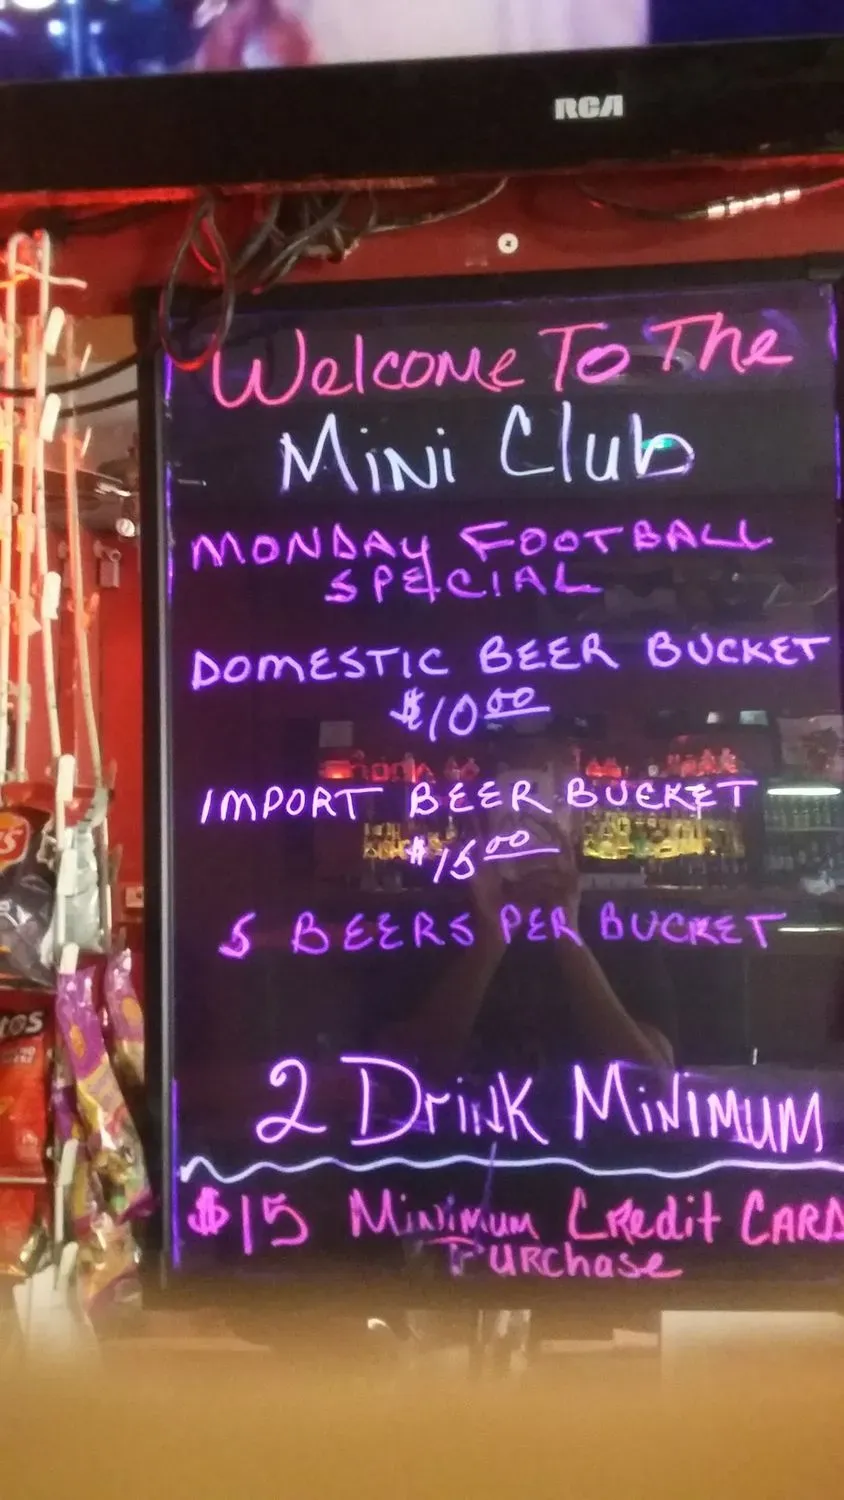 RCA
Welcome To The
Mini Club
MONDAY FOOTBALL
SPECIAL
DOMESTIC BEER BUCKET
$10.00
IMPORT BEER BUCKET
$15.00
5 BEERS PER BUCKET
2 Drink Minimum
$15 Minimum Credit CARD
Purchase